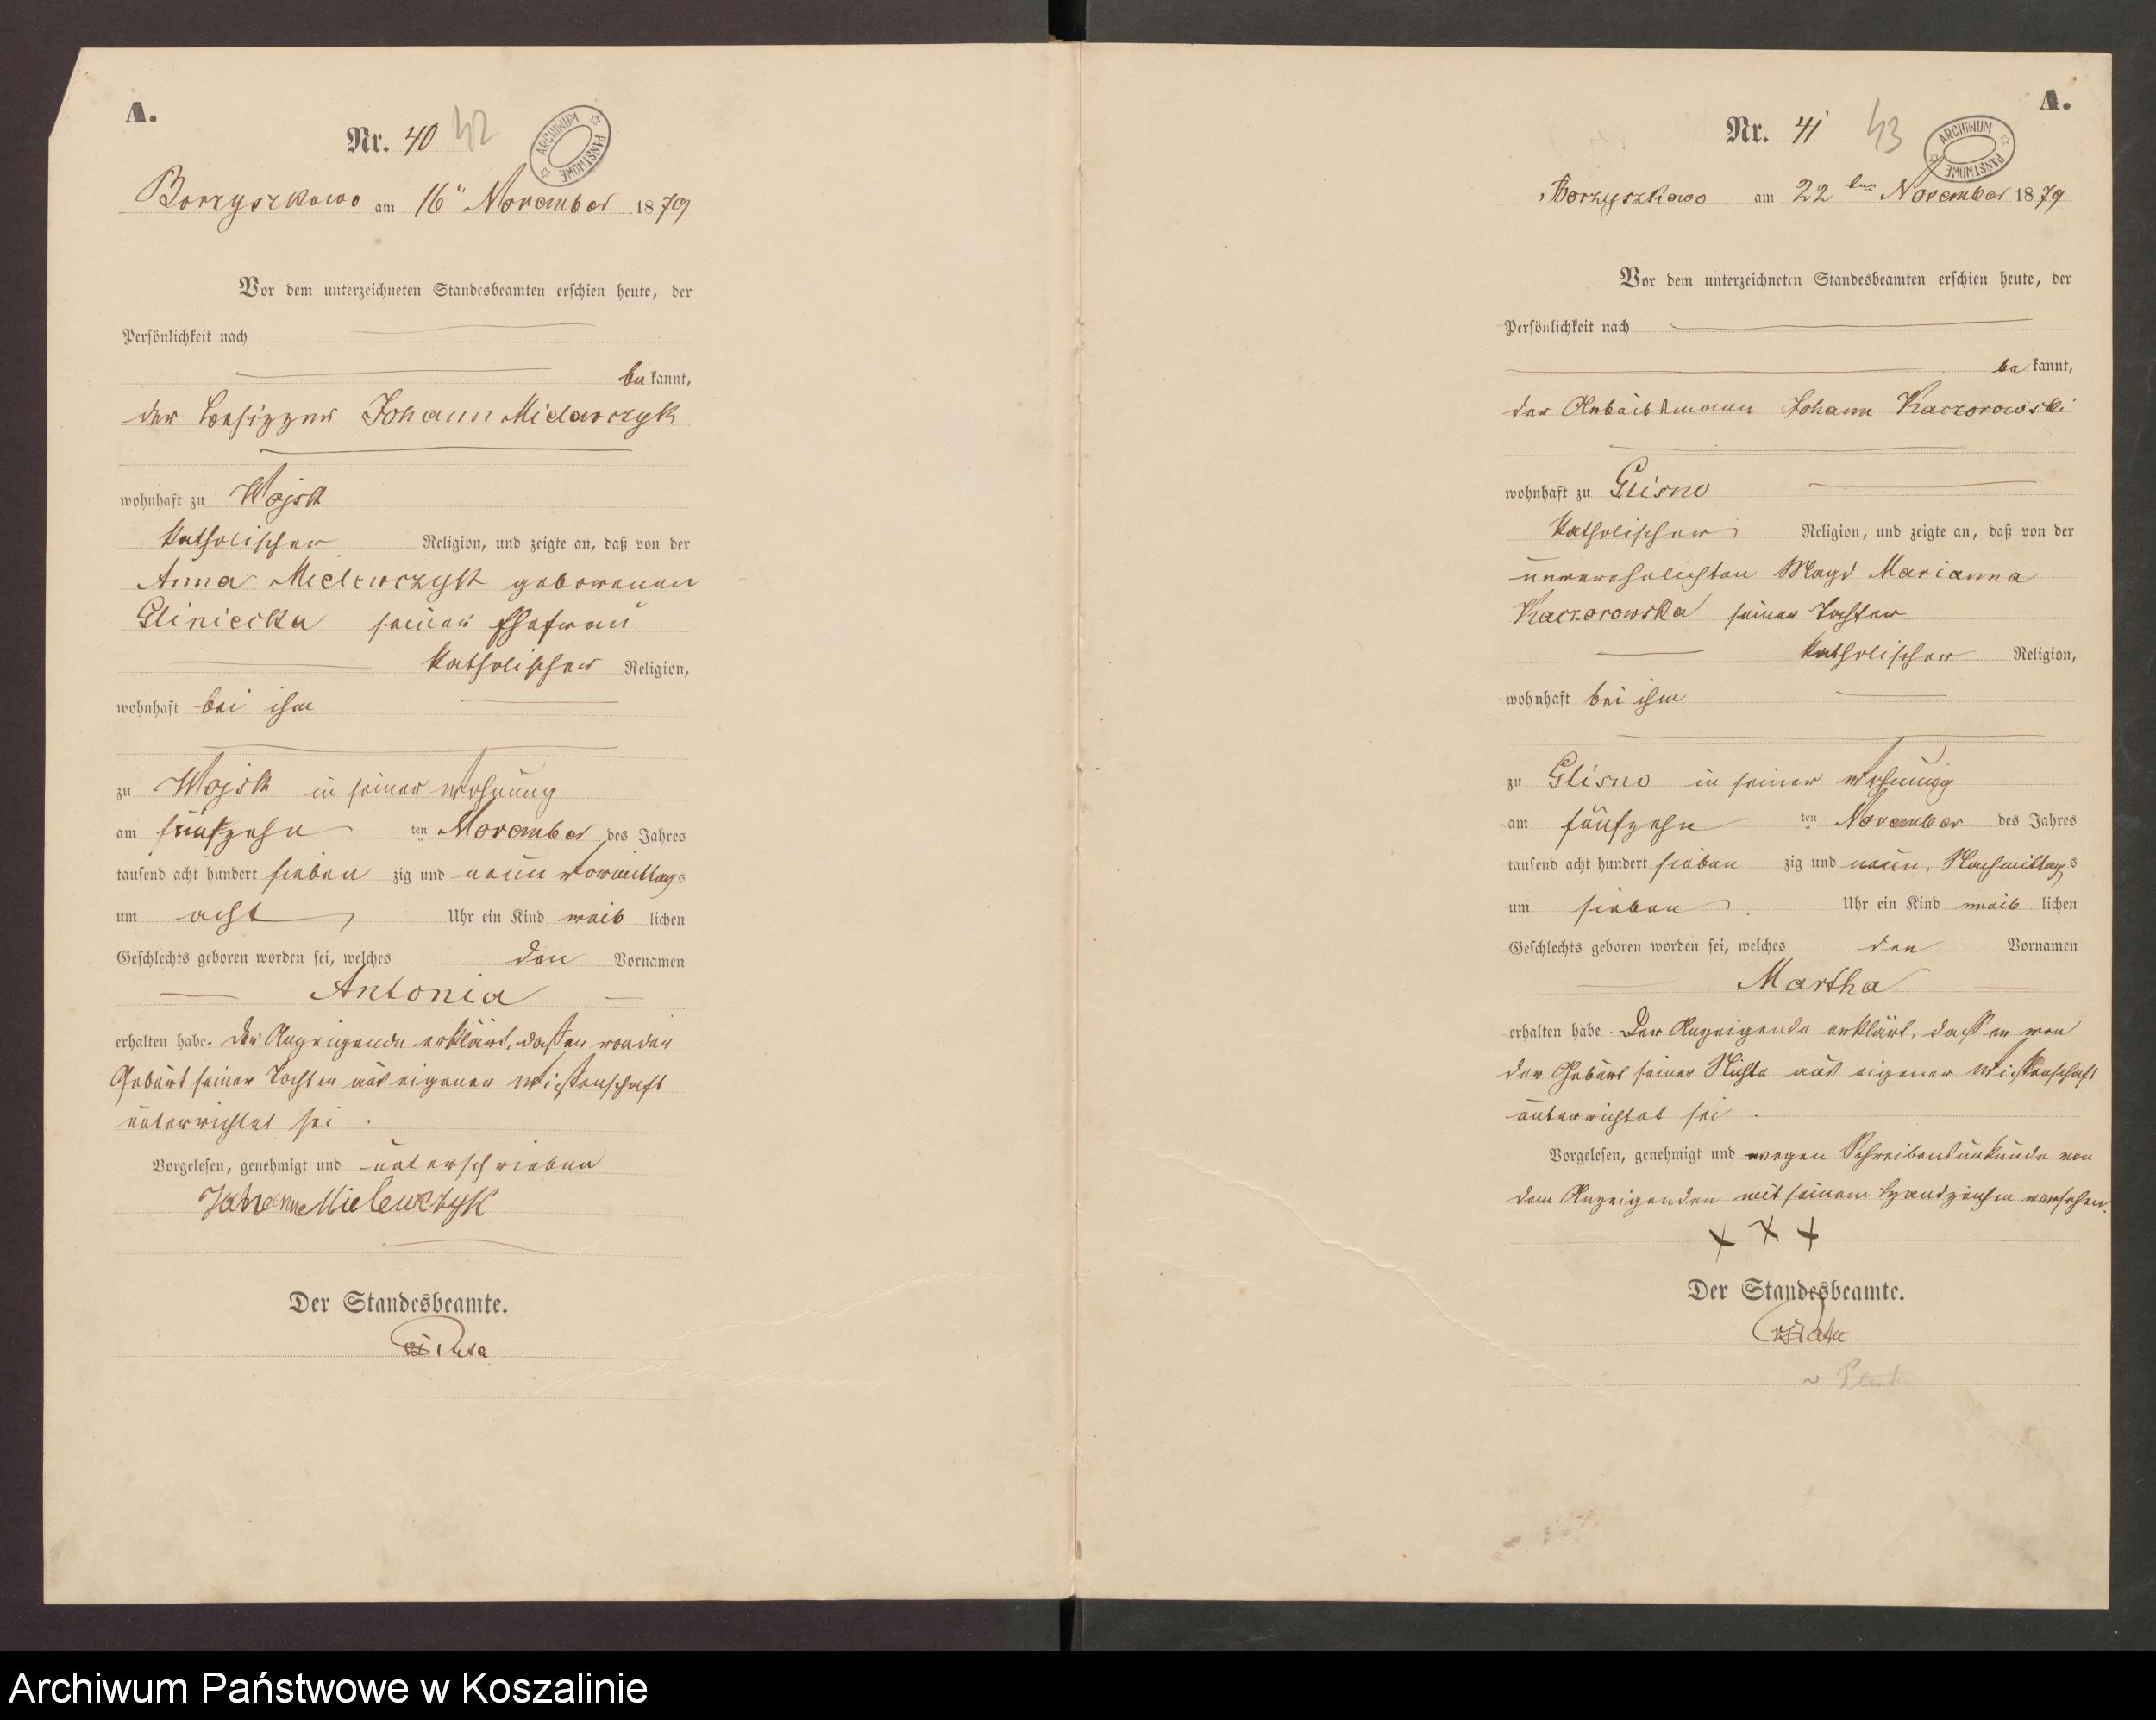 A.
Nr. 40 42
ARCHIWUM PAŃSTWOWE
Borzyszkowo am 16" November 1879
Vor dem unterzeichneten Standesbeamten erschien heute, der
Persönlichkeit nach
bekannt,
der Besitzer Johann Mielewczyk
wohnhaft zu Wojsk
katholischer Religion, und zeigte an, daß von der
Anna Mielewczyk geborenen
Gliniecka seiner Ehefrau
katholischer Religion,
wohnhaft bei ihm
zu Wojsk in seiner Wohnung
am fünfzehn ten November des Jahres
tausend acht hundert sieben zig und neun Vormittags
um acht Uhr ein Kind weib lichen
Geschlechts geboren worden sei, welches den Vornamen
Antonia
erhalten habe. Der Anzeigende erklärt, daß er von der
Geburt seiner Tochter aus eigener Wissenschaft
unterrichtet sei.
Vorgelesen, genehmigt und unterschrieben
Johann Mielewczyk
Der Standesbeamte.
A.
Nr. 41 43
ARCHIWUM PAŃSTWOWE
Borzyszkowo am 22 ten November 1879
Vor dem unterzeichneten Standesbeamten erschien heute, der
Persönlichkeit nach
bekannt,
der Arbeitsmann Johann Kaczorowski
wohnhaft zu Glisno
katholischer Religion, und zeigte an, daß von der
unverehelichten Magd Marianna
Kaczorowska seiner Tochter
katholischer Religion,
wohnhaft bei ihm
zu Glisno in seiner Wohnung
am fünfzehn ten November des Jahres
tausend acht hundert sieben zig und neun, Nachmittags
um sieben Uhr ein Kind weib lichen
Geschlechts geboren worden sei, welches den Vornamen
Martha
erhalten habe. Der Anzeigende erklärt, daß er von
der Geburt seiner Nichte aus eigener Wissenschaft
unterrichtet sei.
Vorgelesen, genehmigt und wegen Schreibensunkunde von
dem Anzeigenden mit seinem Handzeichen versehen.
x x x
Der Standesbeamte.
Archiwum Państwowe w Koszalinie